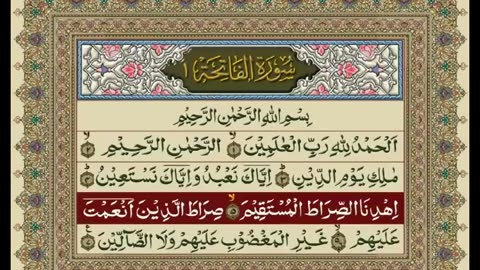 سُورَةُ الْفَاتِحَةِ ١
بِسْمِ اللهِ الرَّحْمٰنِ الرَّحِيْمِ
اَلْحَمْدُ لِلّٰهِ رَبِّ الْعٰلَمِيْنَ ۙ﴿١﴾ الرَّحْمٰنِ الرَّحِيْمِ ۙ﴿٢﴾
مٰلِكِ يَوْمِ الدِّيْنِ ﴿٣﴾ اِيَّاكَ نَعْبُدُ وَاِيَّاكَ نَسْتَعِيْنُ ﴿٤﴾
اِهْدِنَا الصِّرَاطَ الْمُسْتَقِيْمَ ۙ﴿٥﴾ صِرَاطَ الَّذِيْنَ اَنْعَمْتَ
عَلَيْهِمْ ۙ﴿٦﴾ غَيْرِ الْمَغْضُوْبِ عَلَيْهِمْ وَلَا الضَّآلِّيْنَ ﴿٧﴾